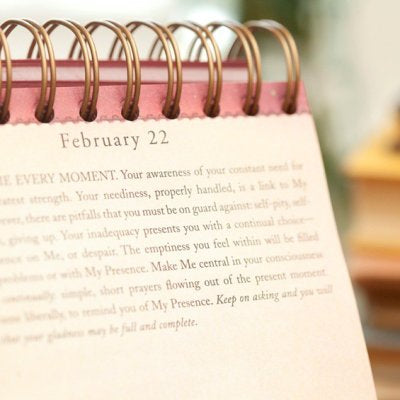 February 22
EVERY MOMENT. Your awareness of your constant need for
strength. Your neediness, properly handled, is a link to My
there are pitfalls that you must be on guard against: self-pity, self-
giving up. Your inadequacy presents you with a continual choice—
on Me, or despair. The emptiness you feel within will be filled
problems or with My Presence. Make Me central in your consciousness
continually: simple, short prayers flowing out of the present moment.
liberally, to remind you of My Presence. Keep on asking and you will
that your gladness may be full and complete.